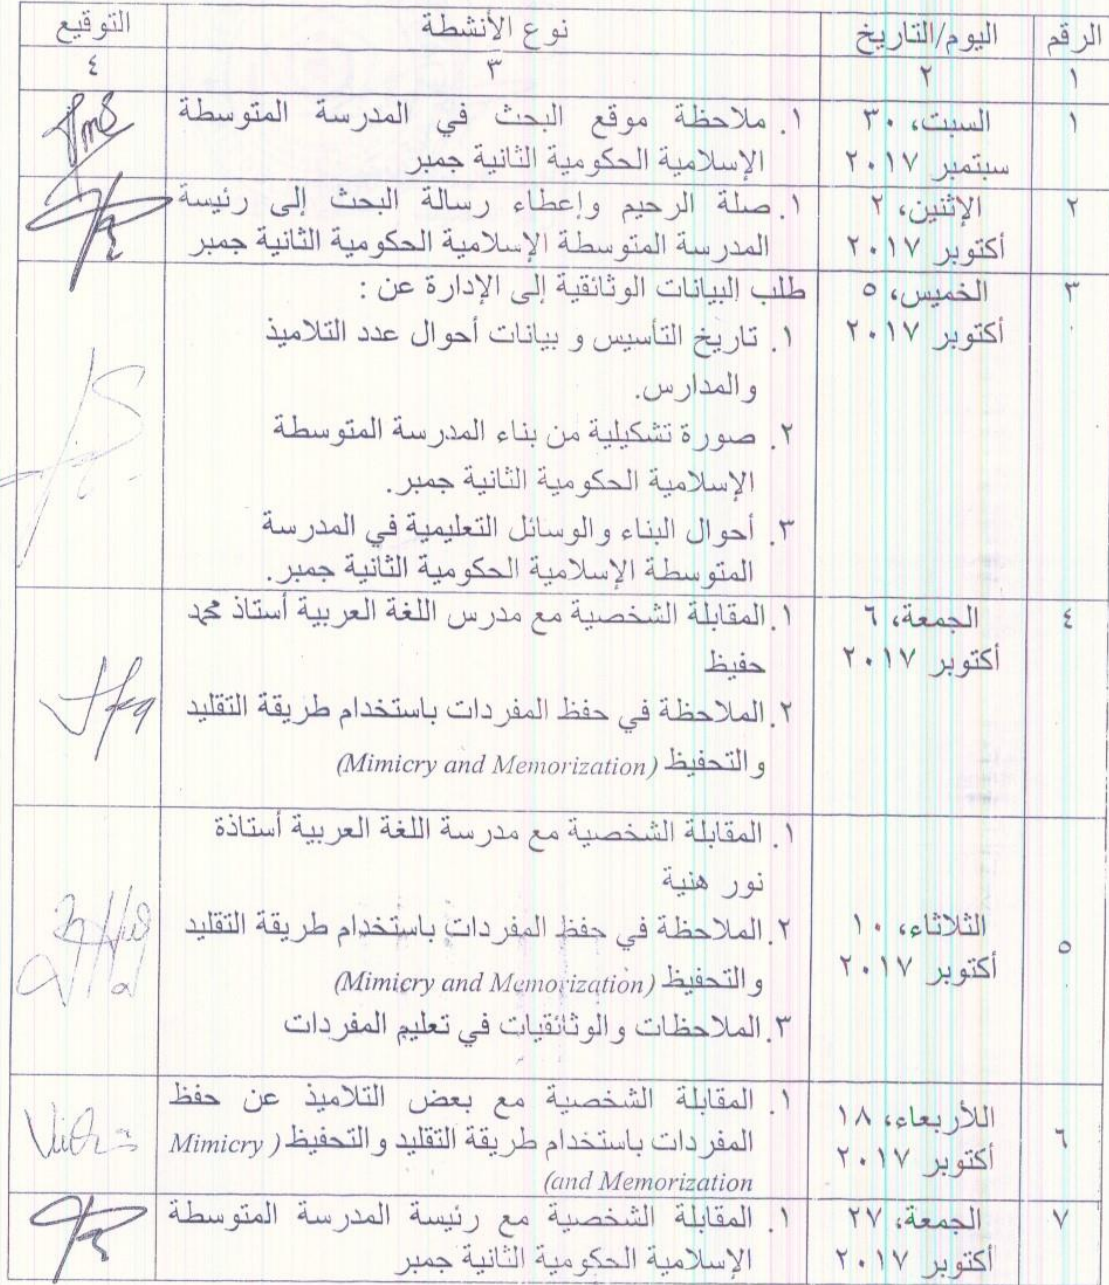 الرقم اليوم/التاريخ نوع الأنشطة التوقيع
١ ٢ ٣ ٤
١ السبت، ٣٠ ١. ملاحظة موقع البحث في المدرسة المتوسطة
سبتمبر ٢٠١٧ الإسلامية الحكومية الثانية جمبر
٢ الإثنين، ٢ ١. صلة الرحيم وإعطاء رسالة البحث إلى رئيسة
أكتوبر ٢٠١٧ المدرسة المتوسطة الإسلامية الحكومية الثانية جمبر
٣ الخميس، ٥ طلب البيانات الوثائقية إلى الإدارة عن :
أكتوبر ٢٠١٧ ١. تاريخ التأسيس و بيانات أحوال عدد التلاميذ
والمدارس.
٢. صورة تشكيلية من بناء المدرسة المتوسطة
الإسلامية الحكومية الثانية جمبر.
٣. أحوال البناء والوسائل التعليمية في المدرسة
المتوسطة الإسلامية الحكومية الثانية جمبر.
٤ الجمعة، ٦ ١. المقابلة الشخصية مع مدرس اللغة العربية أستاذ محمد
أكتوبر ٢٠١٧ حفيظ
٢. الملاحظة في حفظ المفردات باستخدام طريقة التقليد
والتحفيظ (Mimicry and Memorization)
١. المقابلة الشخصية مع مدرسة اللغة العربية أستاذة
نور هنية
٥ الثلاثاء، ١٠ ٢. الملاحظة في حفظ المفردات باستخدام طريقة التقليد
أكتوبر ٢٠١٧ والتحفيظ (Mimicry and Memorization)
٣. الملاحظات والوثائقيات في تعليم المفردات
١. المقابلة الشخصية مع بعض التلاميذ عن حفظ
٦ اللأربعاء، ١٨ المفردات باستخدام طريقة التقليد والتحفيظ (Mimicry
أكتوبر ٢٠١٧ and Memorization)
٧ الجمعة، ٢٧ ١. المقابلة الشخصية مع رئيسة المدرسة المتوسطة
أكتوبر ٢٠١٧ الإسلامية الحكومية الثانية جمبر